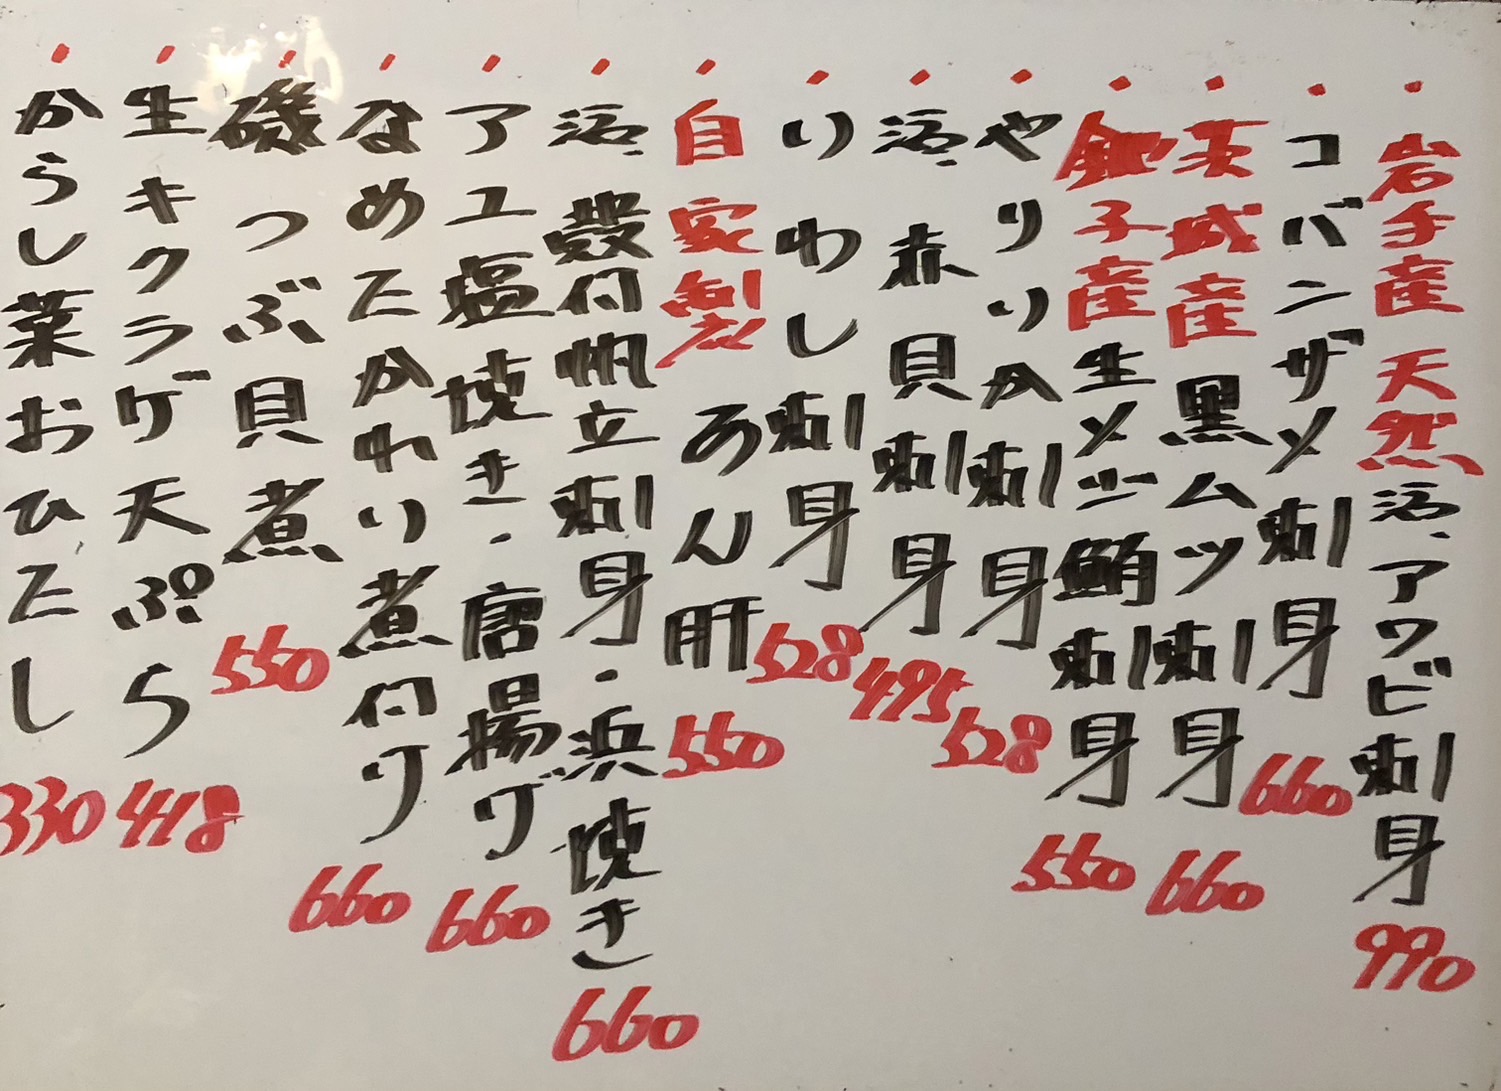 ・岩手産 天然 活.アワビ刺身 990
・コバンザメ刺身 660
・茨城産 黒ムツ刺身 660
・銚子産 生メジ鮪刺身 550
・やりいか刺身 528
・活.赤貝刺身 495
・いわし刺身 528
・自家製 あん肝 550
・活.殻付帆立刺身・浜焼き 660
・アユ塩焼き・唐揚げ 660
・なめたかれい煮付け 660
・磯つぶ貝煮 550
・生キクラゲ天ぷら 418
・からし菜おひたし 330